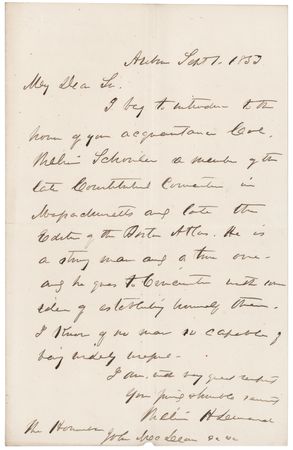 Auburn Sept 1. 1853
My Dear Sir.
I beg to introduce to the
honor of your acquaintance Col.
William Schouler a member of the
late Constitutional Convention in
Massachusetts and late the
Editor of the Boston Atlas. He is
a strong man and a true one
and he goes to Cincinnati with some
idea of establishing himself there.
I know of no man so capable of
being widely useful.
I am with very great respect
Your friend & humble servant
William H Seward
The Honorable
John McLean